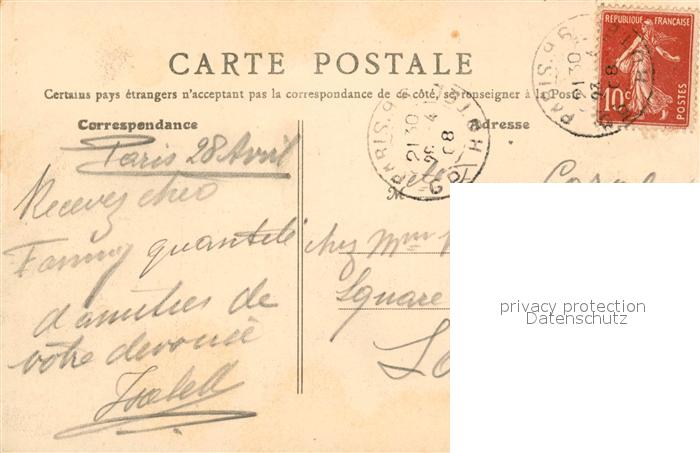 CARTE POSTALE
Certains pays étrangers n'acceptant pas la correspondance de ce côté, se renseigner à la Poste
Correspondance
Adresse
RÉPUBLIQUE FRANÇAISE
10c
POSTES
PARIS.9
21 30
28 4
08
Paris 28 Avril
Recevez
Fanny quantité
d'amitiés de
votre devouée
chez Mme
Square
privacy protection
Datenschutz